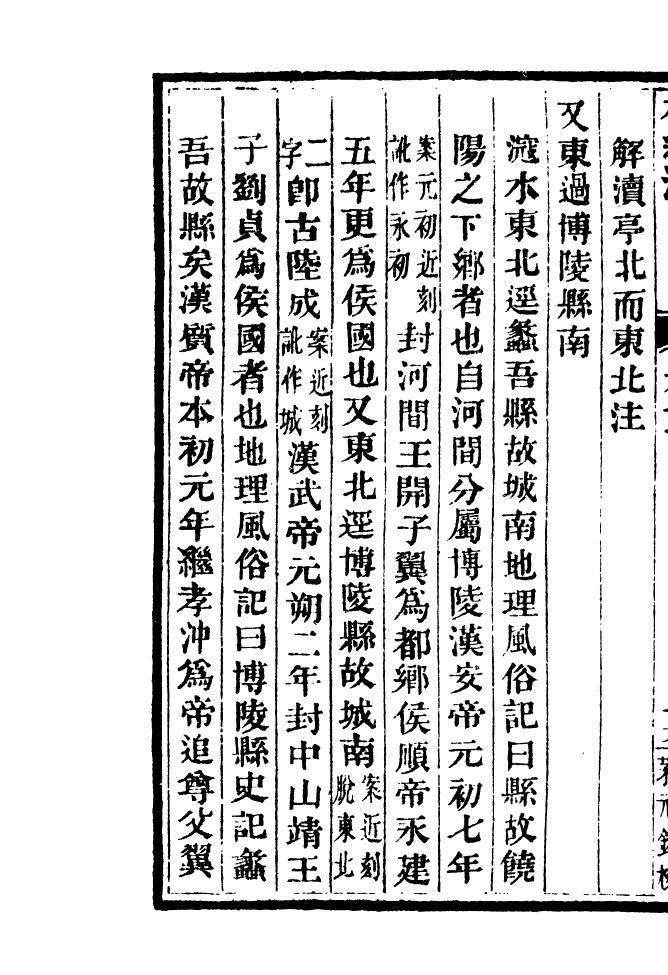 解瀆亭北而東北注
又東過博陵縣南
㴲水東北逕蠡吾縣故城南地理風俗記曰縣故饒
陽之下鄉者也自河間分屬博陵漢安帝元初七年
案元初近刻
訛作永初
封河間王開子翼爲都鄉侯順帝永建
五年更爲侯國也又東北逕博陵縣故城南
案近刻
脫東北
二字
卽古陸成
案近刻
訛作城
漢武帝元朔二年封中山靖王
子劉貞爲侯國者也地理風俗記曰博陵縣史記蠡
吾故縣矣漢質帝本初元年繼孝沖爲帝追尊父翼